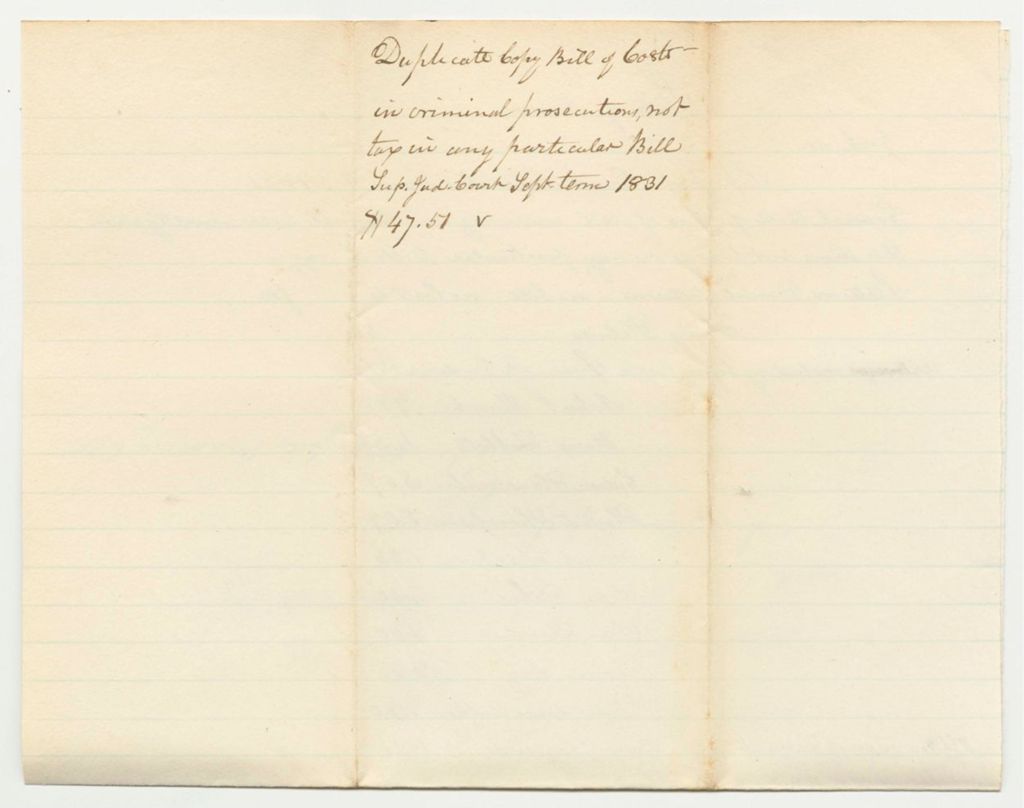 Duplicate Copy Bill of Costs
in criminal prosecutions, not
tax in any particular Bill
Sup. Jud. Court Sept. term 1831
$47.51 v